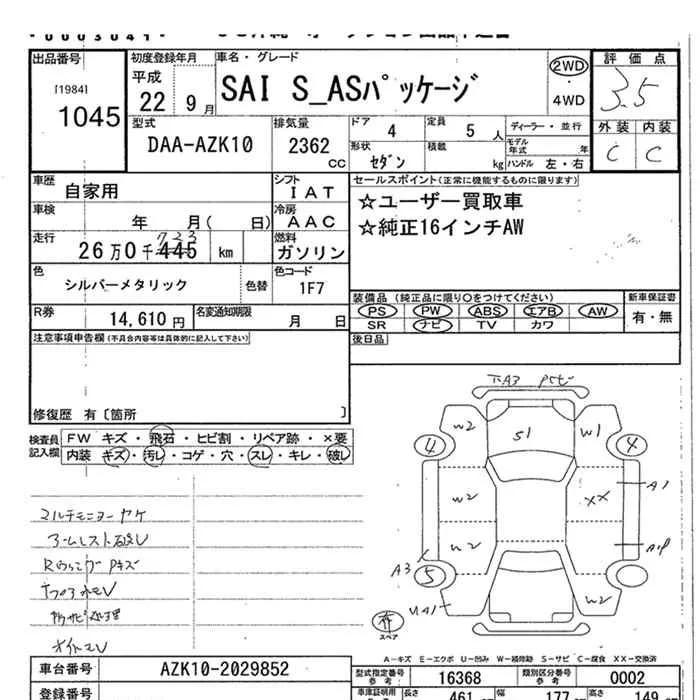 出品番号
[1984]
1045
初度登録年月
平成
22 9月
車名・グレード
SAI S_ASパッケージ
2WD
・
4WD
評価点
3.5
外装 内装
C C
型式
DAA-AZK10
排気量
2362
cc
ドア
4
定員
5 人
形状
セダン
積載
kg
ディーラー・並行
モデル年式 年
ハンドル 左・右
車歴
自家用
シフト
IAT
車検
年 月( 日)
冷房
AAC
走行
26万0千445 km
723
燃料
ガソリン
色
シルバーメタリック
色替
色コード
1F7
R券
14,610円
名変通知期限
月 日
セールスポイント(正常に機能するものに限ります)
☆ユーザー買取車
☆純正16インチAW
装備品 (純正品に限り○をつけてください)
PS PW ABS エアB AW
SR ナビ TV カワ
新車保証書
有・無
後日品
注意事項申告欄(不具合内容等は具体的に記入して下さい)
修復歴 有〔箇所 〕
検査員
記入欄
FW キズ・飛石・ヒビ割・リペア跡・×要
内装 キズ・汚レ・コゲ・穴・スレ・キレ・破レ
マルチモニターヤケ
アームレスト破レ
W2
S1
W1
4
4
W2
XX
A1
W2
A3
5
UA1
W2
スペア
A-キズ E-エクボ U-凹み W-補修跡 S-サビ C-腐食 XX-交換済
車台番号
AZK10-2029852
型式指定番号
参考
16368
類別区分番号
参考
0002
登録番号
車庫証明用
長さ
461
幅
177
高さ
149